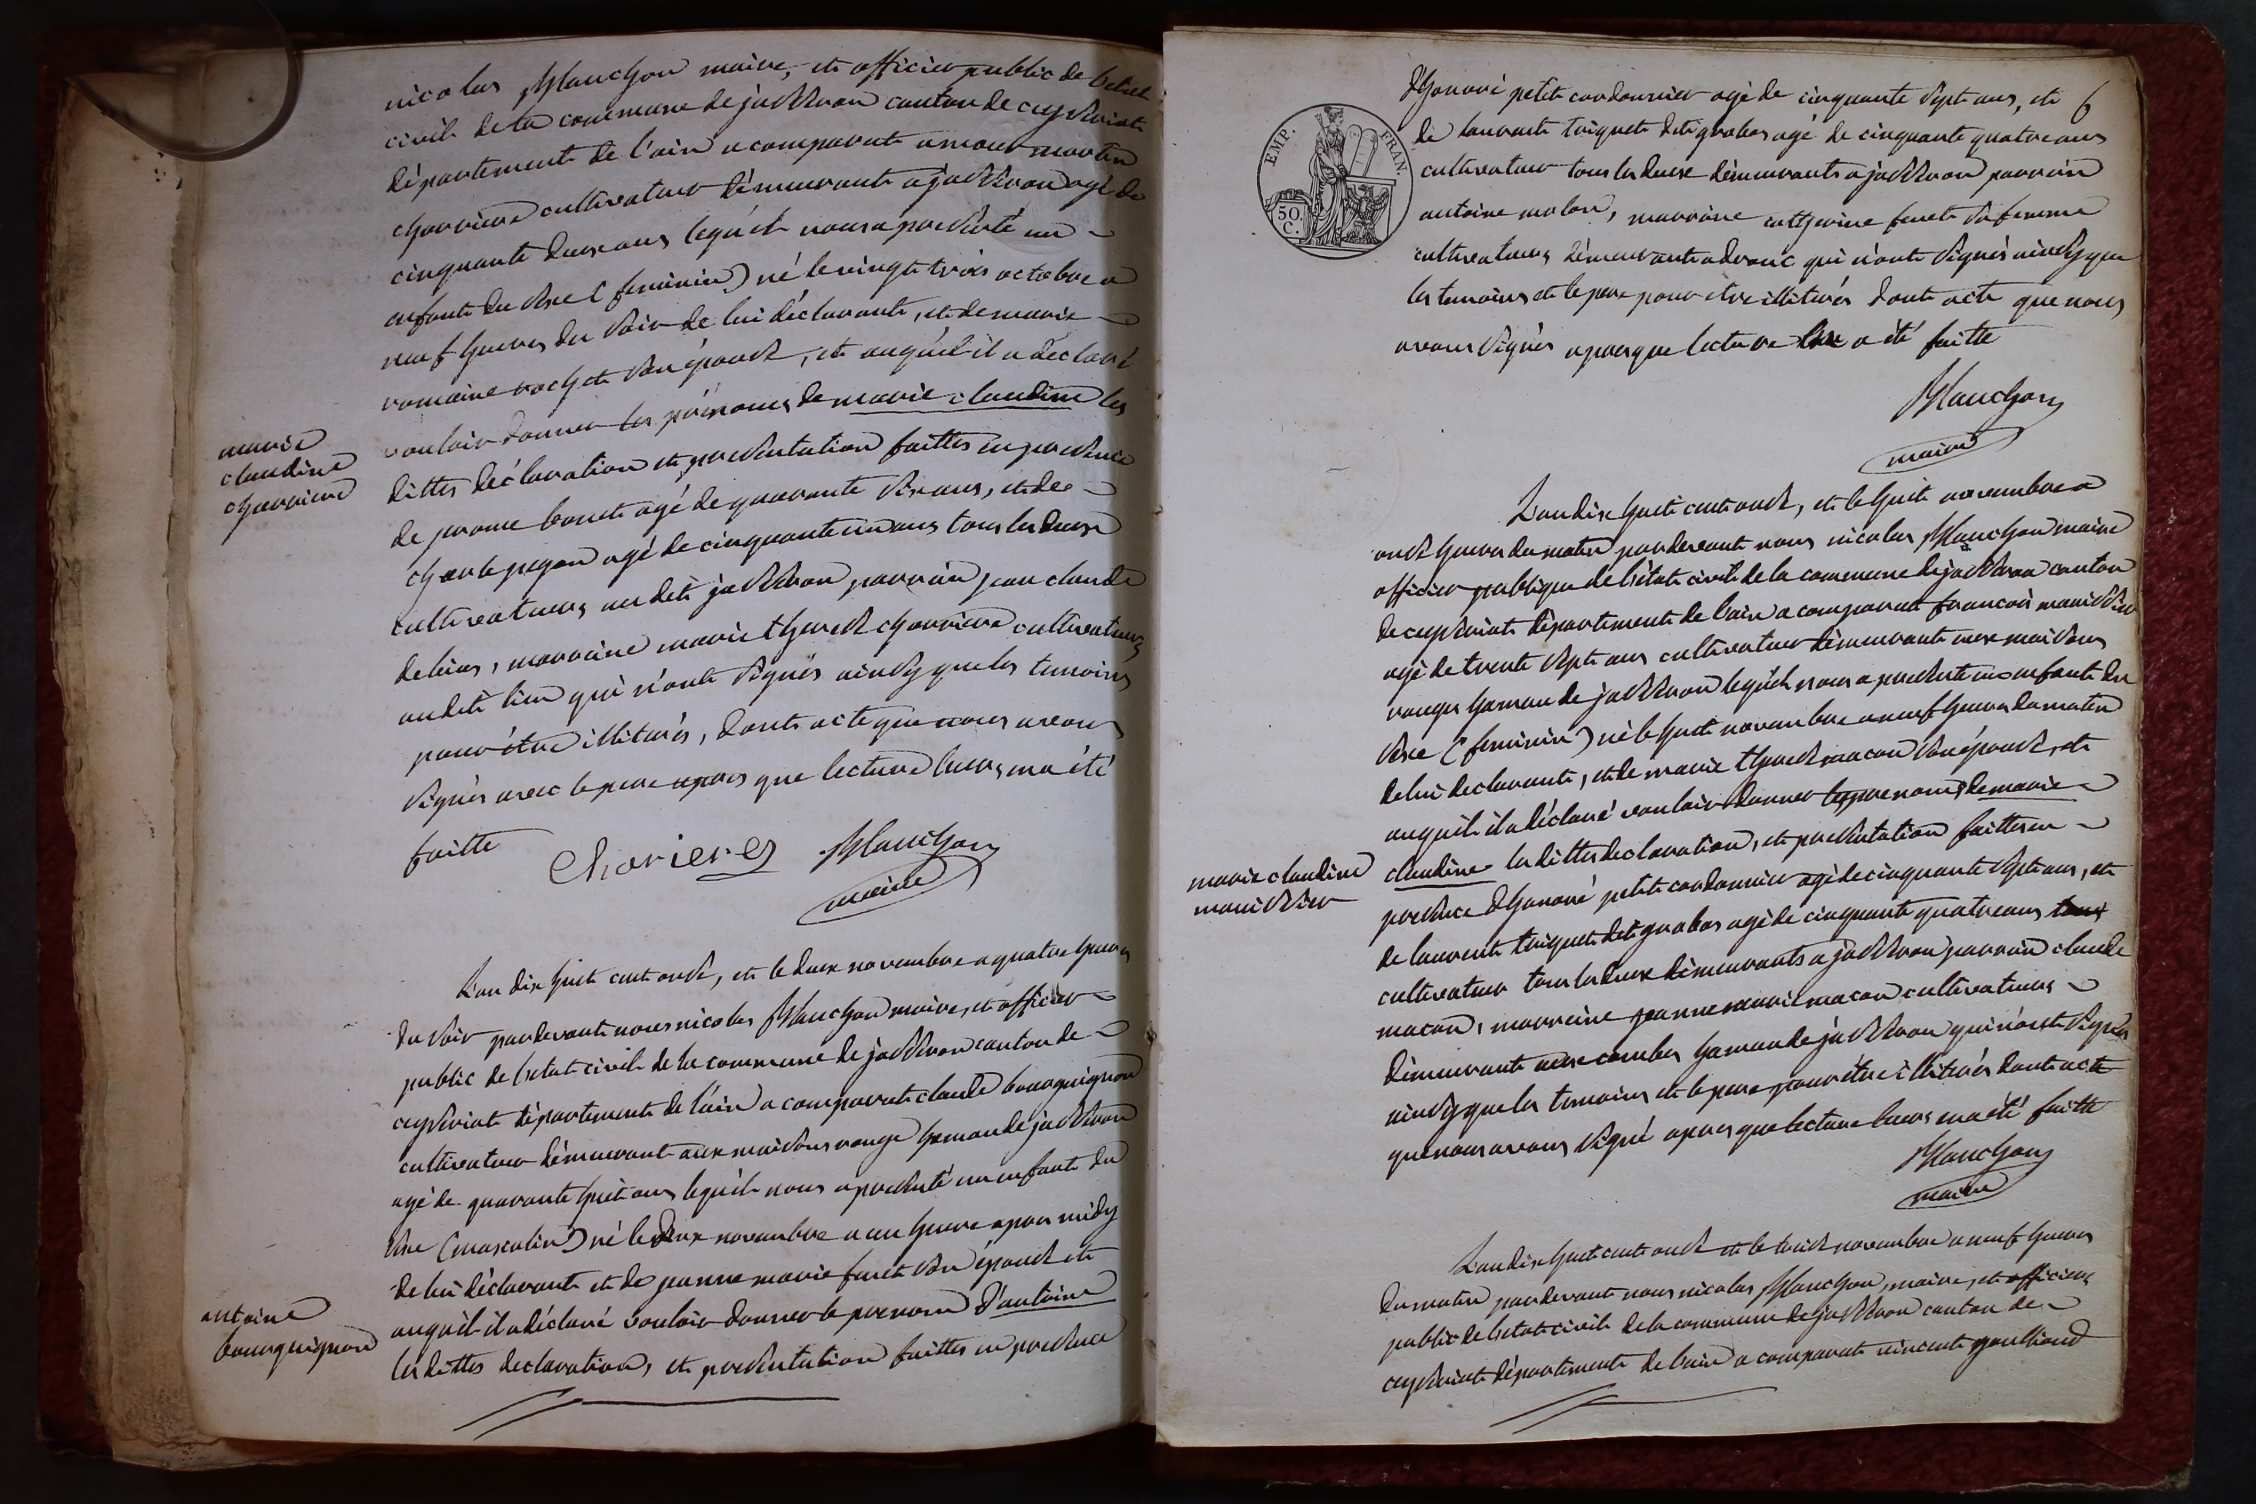 nicolas Manchon maire, et officier public de letat
civil de la commune de jasseron canton de ceyseriat
département de l'ain a comparut amour martin
charriere cultivateur démeurant a jasseron agé de
cinquante deux ans lequ'el nous a presenté un
enfant du sexe (feminin) né le vingt trois octobre a
neuf heures du soir de lui déclarant, et de marie
romaine rochet son épouse, et auquel il a déclaré
vouloir donner les prénoms de marie claudine les
dittes déclaration et presentation faittes en presence
de jerome bonet agé de quarante six ans, et de
charle pegon agé de cinquante un ans tous les deux
cultivateurs au dit jasseron parrain jean claude
debias, marraine marie therese charriere cultivateurs
au dit lieu qui n'ont signés ainsy que les temoins
pour être illiturés, dont acte que nous avons
signés avec le pere apres que lecture leurs en a été
faitte
Charieres Manchon
maire
marie
claudine
charriere
L'an dix huit cent onze, et le deux novembre a quatre heures
du soir pardevant nous nicolas Manchon maire, et officier
public de letat civil de la commune de jasseron canton de
ceyseriat département de l'ain a comparut claude bourguignon
cultivateur démeurant aux maisons rouge hamau de jasseron
agé de quarante huit ans lequ'el nous a presenté un enfant du
sexe (masculin) né le deux novembre a un heure apres midy
de lui déclarant et de jeanne marie furet son épouse et
auquil il a déclaré vouloir donner le prenom d'antoine
les dittes declaration, et presentation faittes en presence
antoine
bourguignon
6
EMP. FRAN.
50.
C.
d'honoré petit cordonnier agé de cinquante sept ans, et
de laurent triquet dit grabas agé de cinquante quatre ans
cultivateur tous les deux démeurants a jasseron parrain
antoine molon, marraine catherine feret sa femme
cultivateurs démeurant a drom qui n'ont signés ainsy que
les temoins et le pere pour etre illiturés dont acte que nous
avons signés apres que lecture a été faitte
Manchon
maire
L'an dix huit cent onze, et le huit novembre a
onze heures du matin pardevant nous nicolas Manchon maire
officier publique de l'état civil de la commune de jasseron canton
de ceyseriat département de l'ain a comparut francois manissier
agé de trente sept ans cultivateur démeurant aux maisons
rouges hamau de jasseron lequ'el nous a presenté un enfant du
sexe (feminin) né le huit novembre a neuf heures du matin
de lui declarant, et de marie therese macon son épouse, et
auquil il a déclaré vouloir donner les prenoms de marie
claudine les dittes declaration, et presentation faittes en
presence d'honoré petit cordonnier agé de cinquante sept ans, et
de laurent triquet dit grabas agé de cinquante quatre ans
cultivateur tous les deux démeurants a jasseron parrain claude
macon, marraine jeanne marie macon cultivateurs
démeurant aux combes hamau de jasseron qui n'ont signés
ainsy que les temoins et le pere pour être illiturés dont acte
que nous avons signé apres que lecture leurs en a été faitte
Manchon
maire
marie claudine
manissier
L'an dix huit cent onze et le treise novembre a neuf heures
du matin pardevant nous nicolas Manchon, maire, et officier
public de letat civil de la commune de jasseron canton de
ceyseriat département de l'ain a comparut vincent